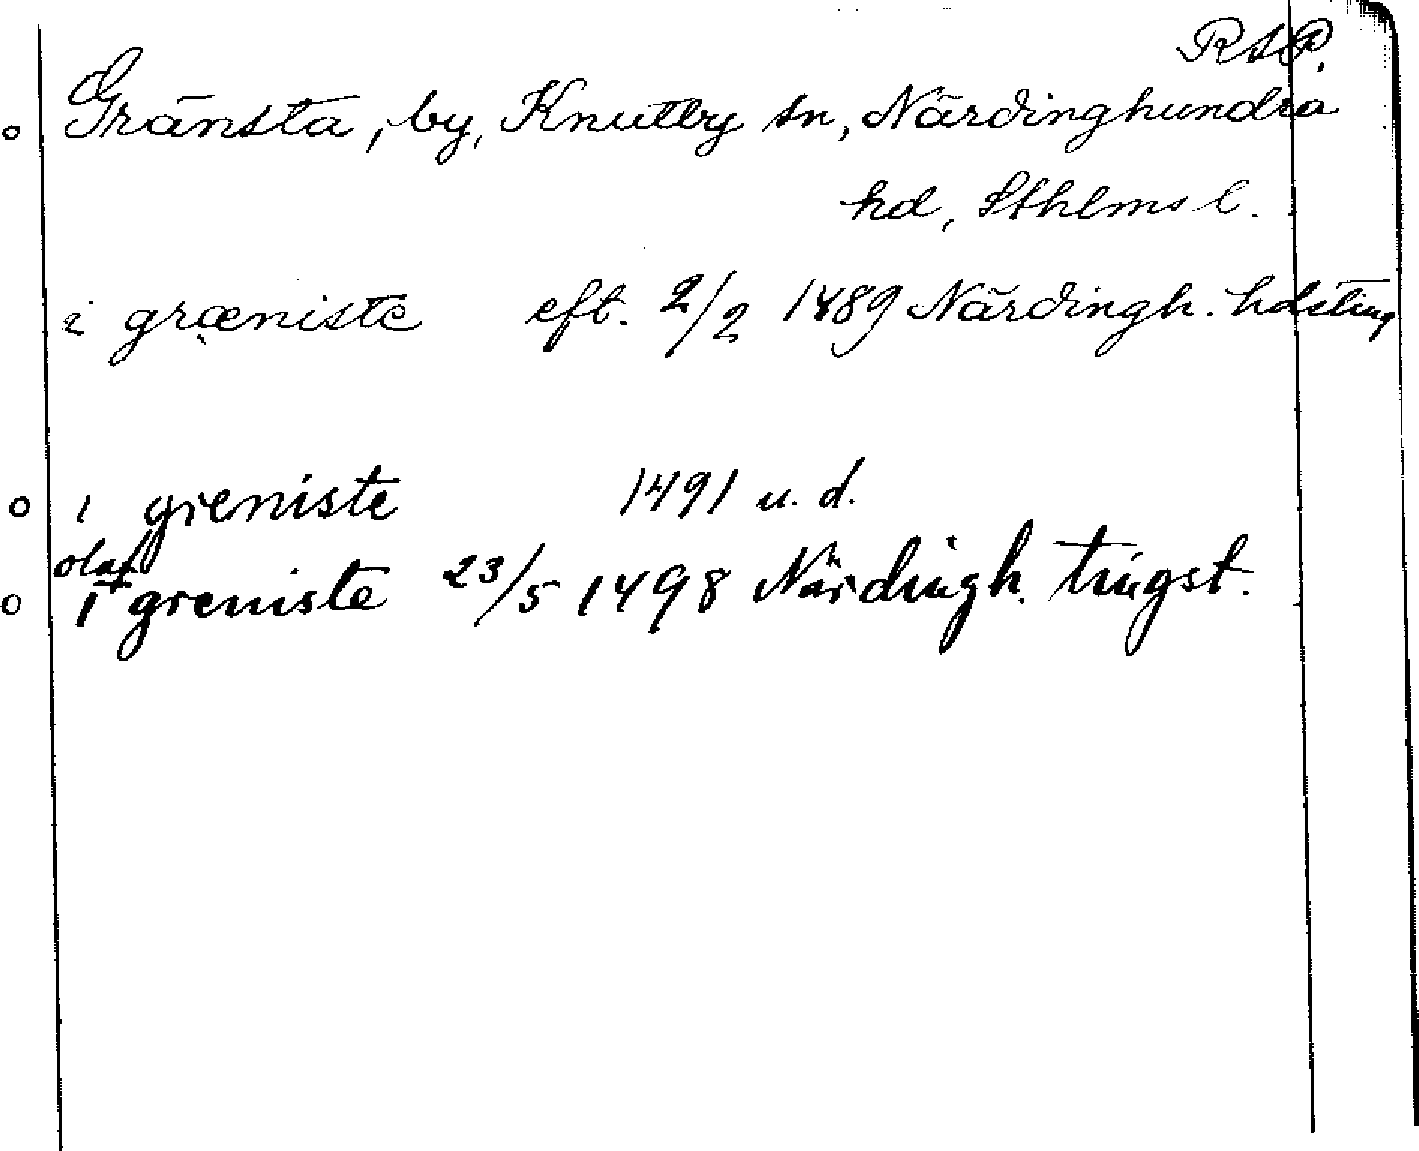 RAP.
Gränsta, by, Knutby sn, Närdinghundra
hd, Sthlms l.
i græniste eft. 2/2 1489 Närdingh. hdsting
i greniste 1491 u. d.
olaf
i greniste 23/5 1498 Närdingh. tingst.